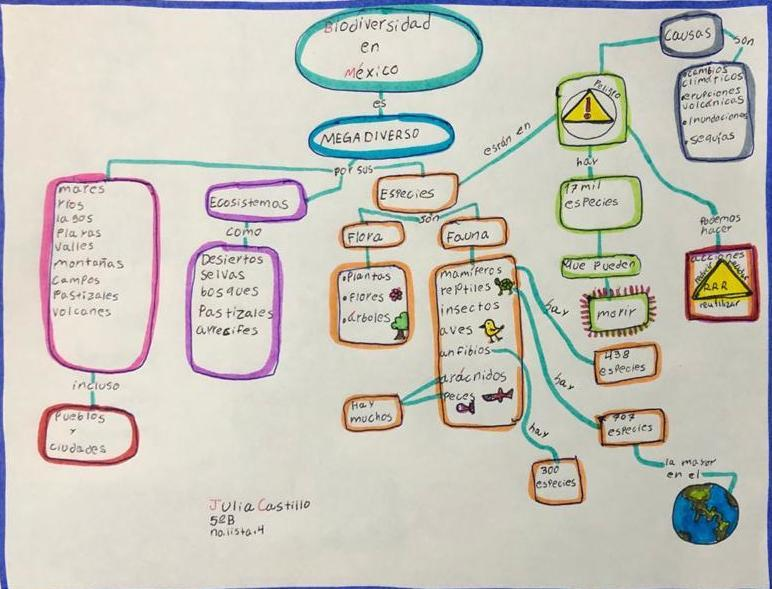 Biodiversidad
en
México
es
MEGADIVERSO
por sus
mares
ríos
lagos
playas
valles
montañas
campos
Pastizales
volcanes
incluso
Pueblos
y
ciudades
Ecosistemas
como
Desiertos
selvas
bosques
Pastizales
arrecifes
Especies
son
Flora
•Plantas
•Flores
•árboles
Fauna
mamíferos
reptiles
insectos
aves
anfibios
arácnidos
Peces
Hay
muchos
hay
438
especies
hay
707
especies
la mayor
en el
hay
300
especies
están en
Peligro
hay
17 mil
especies
que pueden
morir
Causas
son
•cambios
climáticos
•erupciones
volcánicas
•Inundaciones
•sequías
Podemos
hacer
acciones
RRR
reutilizar
Julia Castillo
5ºB
no.lista.4